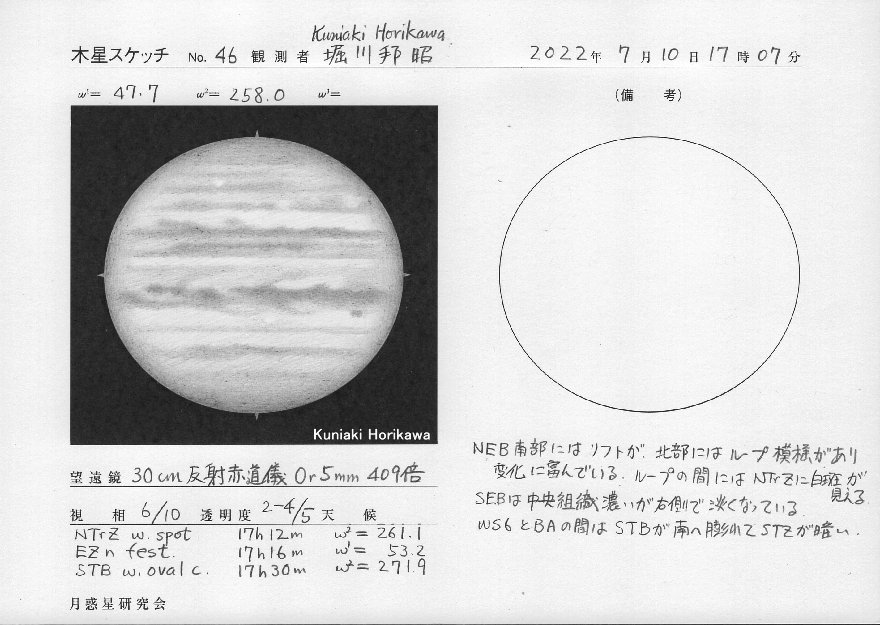 Kuniaki Horikawa
木星スケッチ No. 46 観測者 堀川邦昭 2022年 7月10日17時07分
ω¹= 47.7 ω²= 258.0 ω³=
(備 考)
Kuniaki Horikawa
望遠鏡 30cm反射赤道儀 Or5mm 409倍
視 相 6/10 透明度 2-4/5 天 候
NTrZ w. spot 17h12m ω²= 261.1
EZn fest. 17h16m ω¹= 53.2
STB w. oval c. 17h30m ω²= 271.9
月惑星研究会
NEB南部にはリフトが、北部にはループ模様があり
変化に富んでいる。ループの間にはNTrZに白斑が
見える
SEBは中央組織濃いが右側で淡くなっている。
WS6とBAの間はSTBが南へ膨れてSTZが暗い.